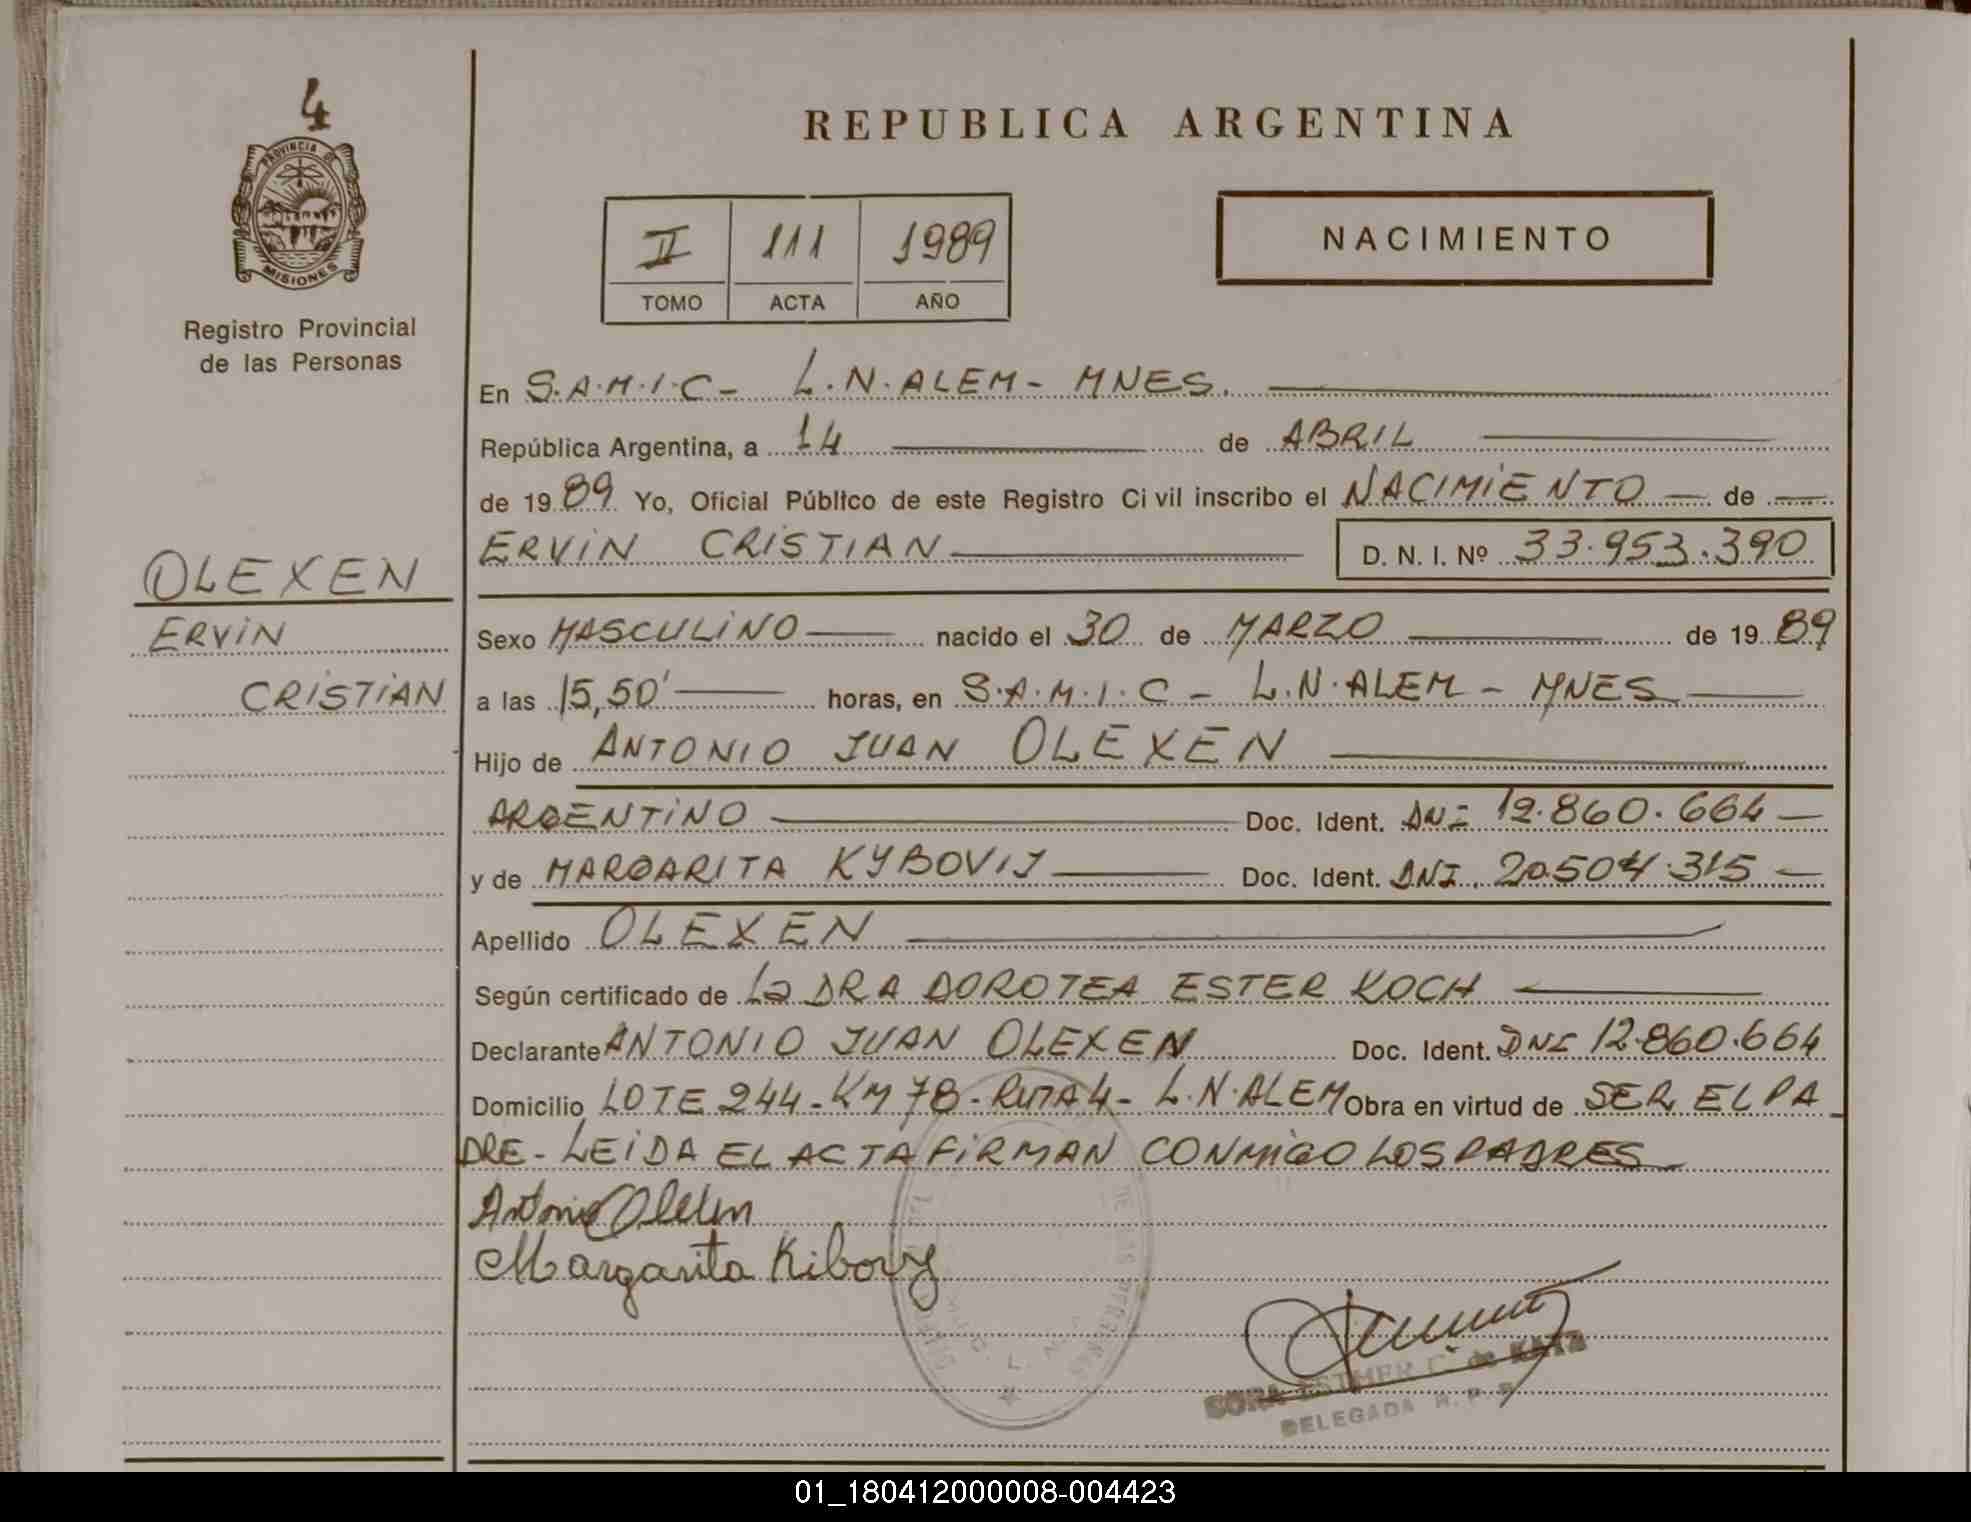 4
PROVINCIA DE
MISIONES
Registro Provincial
de las Personas
OLEXEN
ERVIN
CRISTIAN
REPUBLICA ARGENTINA
II 111 1989
TOMO ACTA AÑO
NACIMIENTO
En S.A.M.I.C- L.N.ALEM- MNES.
República Argentina, a 14 de ABRIL
de 1989 Yo, Oficial Público de este Registro Civil inscribo el NACIMIENTO de
ERVIN CRISTIAN D. N. I. Nº 33.953.390
Sexo MASCULINO nacido el 30 de MARZO de 1989
a las 15,50' horas, en S.A.M.I.C - L.N.ALEM - MNES
Hijo de ANTONIO JUAN OLEXEN
ARGENTINO Doc. Ident. DNI 12.860.664
y de MARGARITA KYBOVIJ Doc. Ident. DNI. 20.504.315
Apellido OLEXEN
Según certificado de La DRA DOROTEA ESTER KOCH
Declarante ANTONIO JUAN OLEXEN Doc. Ident. DNI 12.860.664
Domicilio LOTE 244-KM 78-RUTA 4- L.N.ALEM Obra en virtud de SER EL PA
DRE- LEIDA EL ACTA FIRMAN CONMIGO LOS PADRES
Antonio Olexen
Margarita Kibovy
ESTHER C. de
DELEGADA R. P. P.
01_180412000008-004423